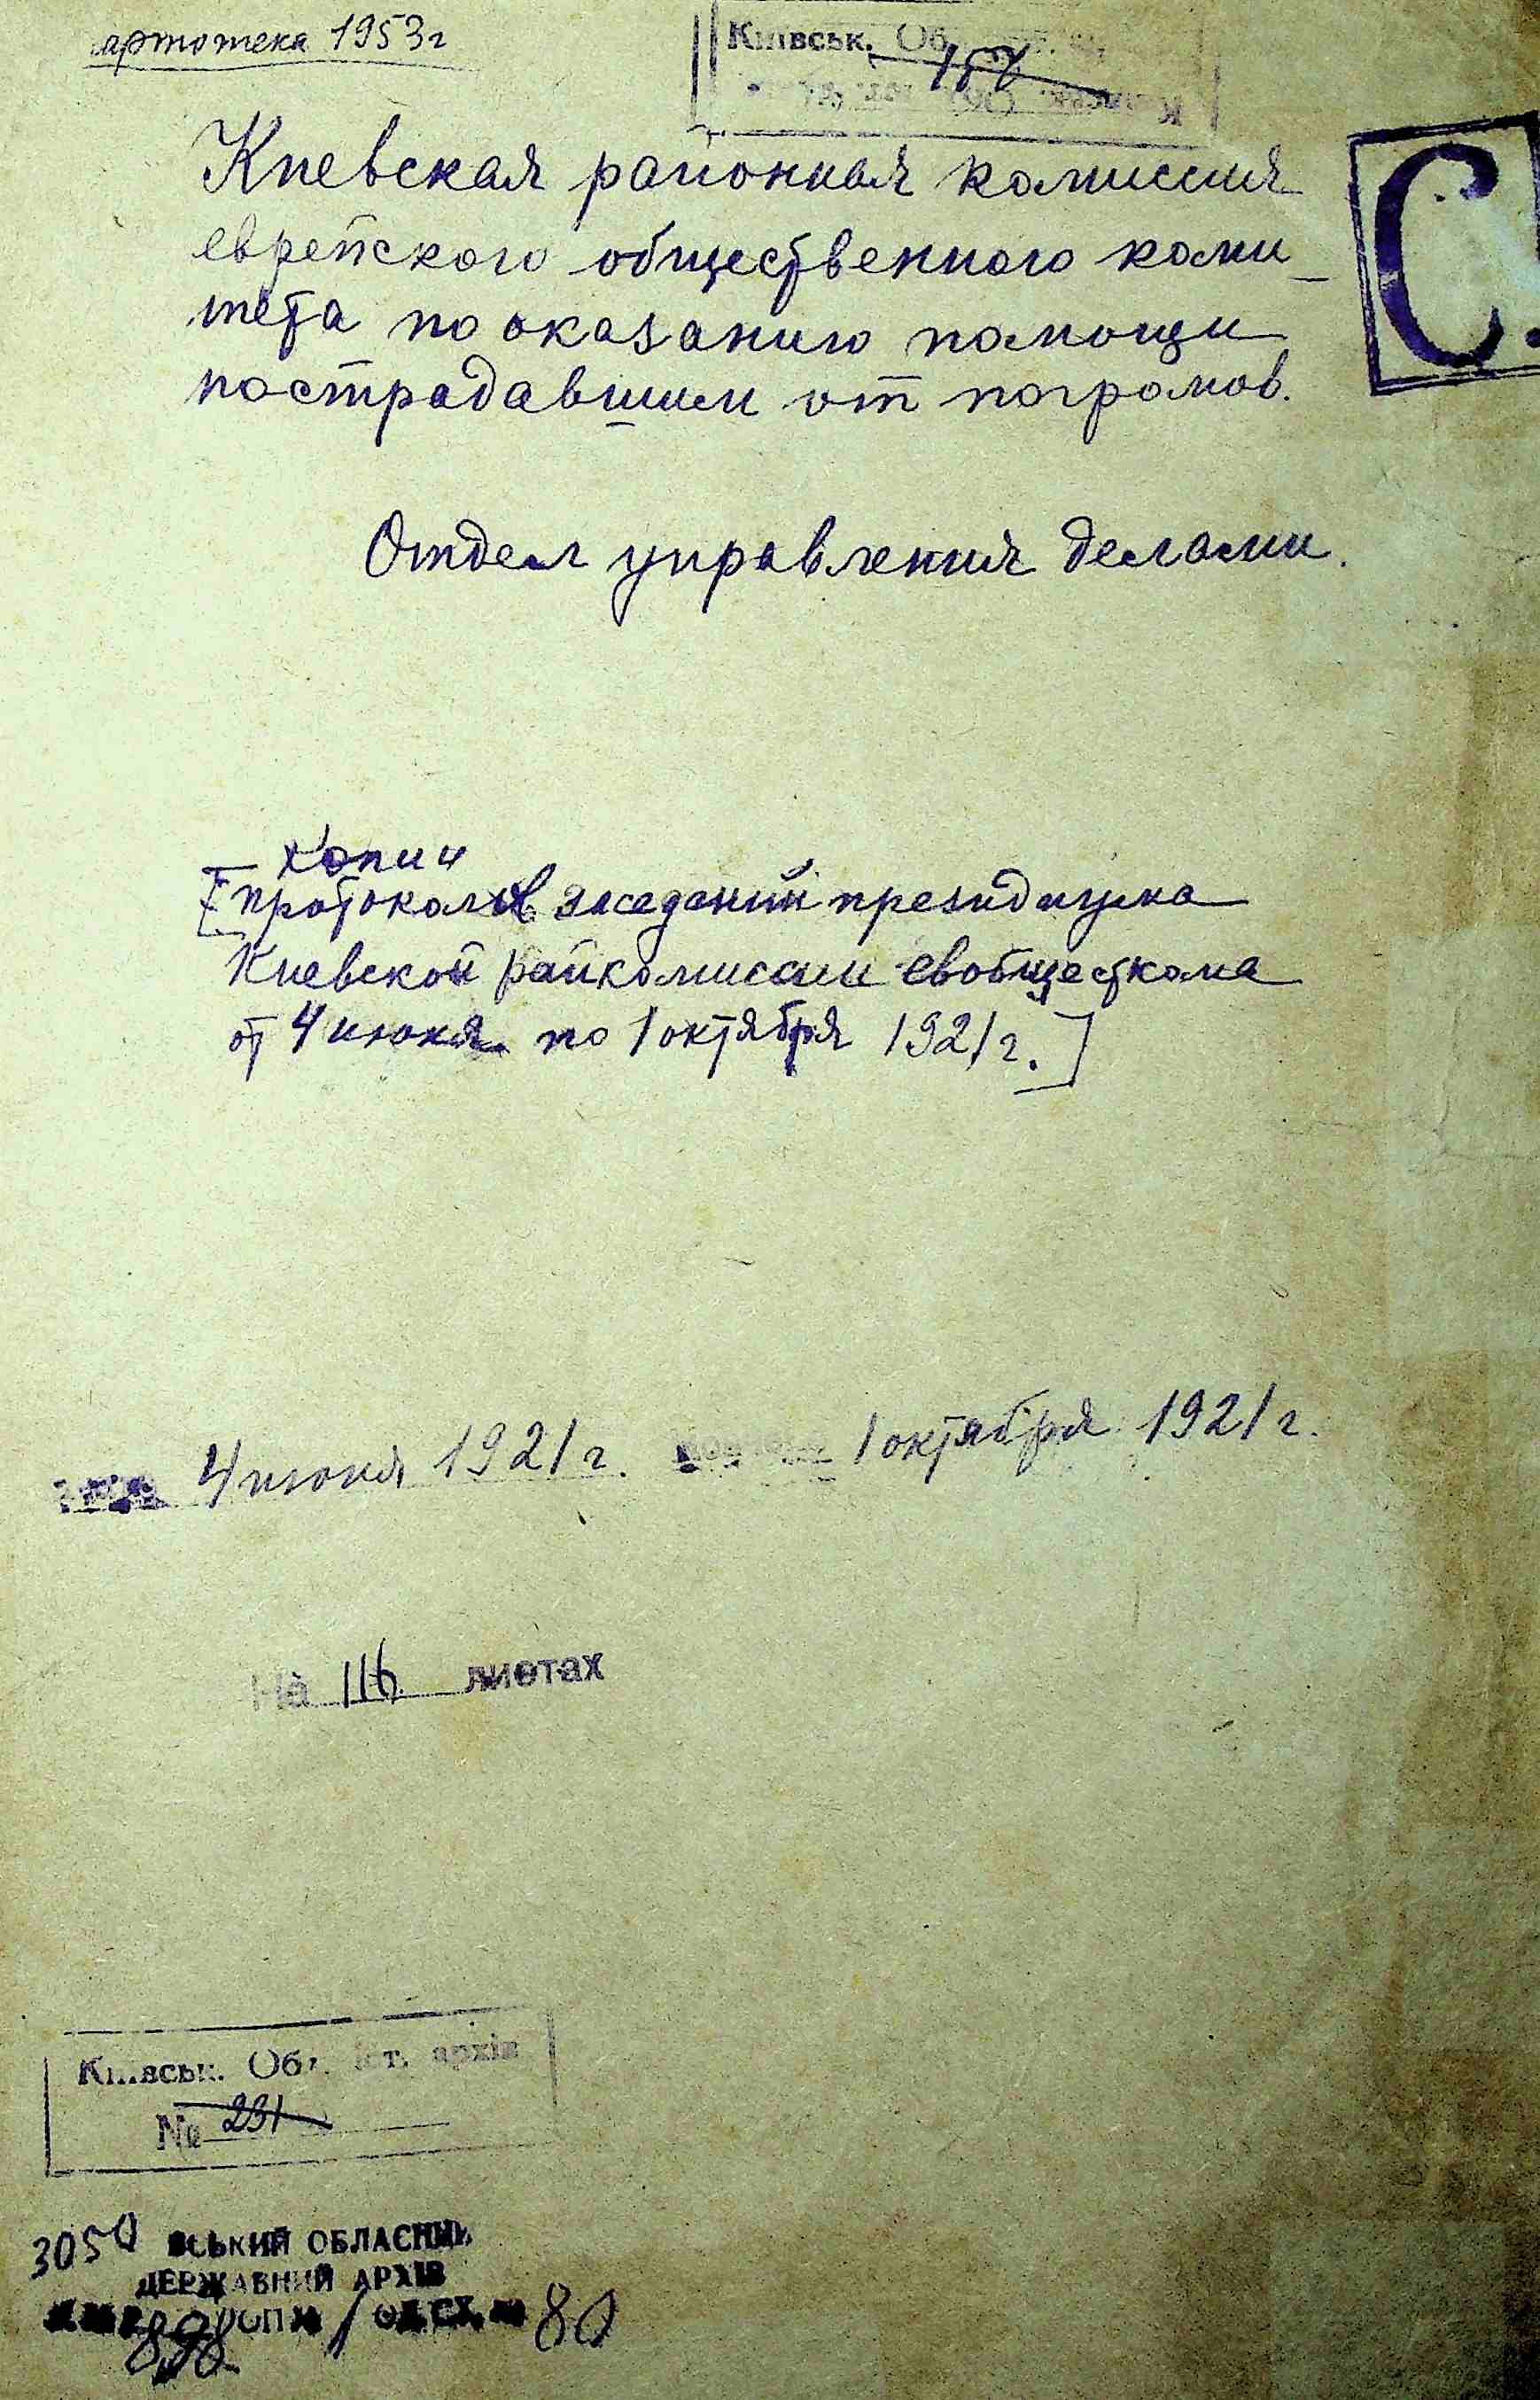 артотека 1953г
Київськ. Об
Киевская районная комиссия
С.
еврейского общественного коми-
тета по оказанию помощи
пострадавшим от погромов.
Отдел управления делами.
Копии
[протоколов заседаний президиума
Киевской райкомиссии евобщесткома
от 4 июня по 1 октября 1921 г.]
4 июня 1921 г. 1 октября 1921 г.
На 116 листах
Київськ. Обл. іст. архів
№ 231
3050 вський обласний
ДЕРЖАВНИЙ АРХІВ
898 ОП № 1 ОД. СХ. № 80